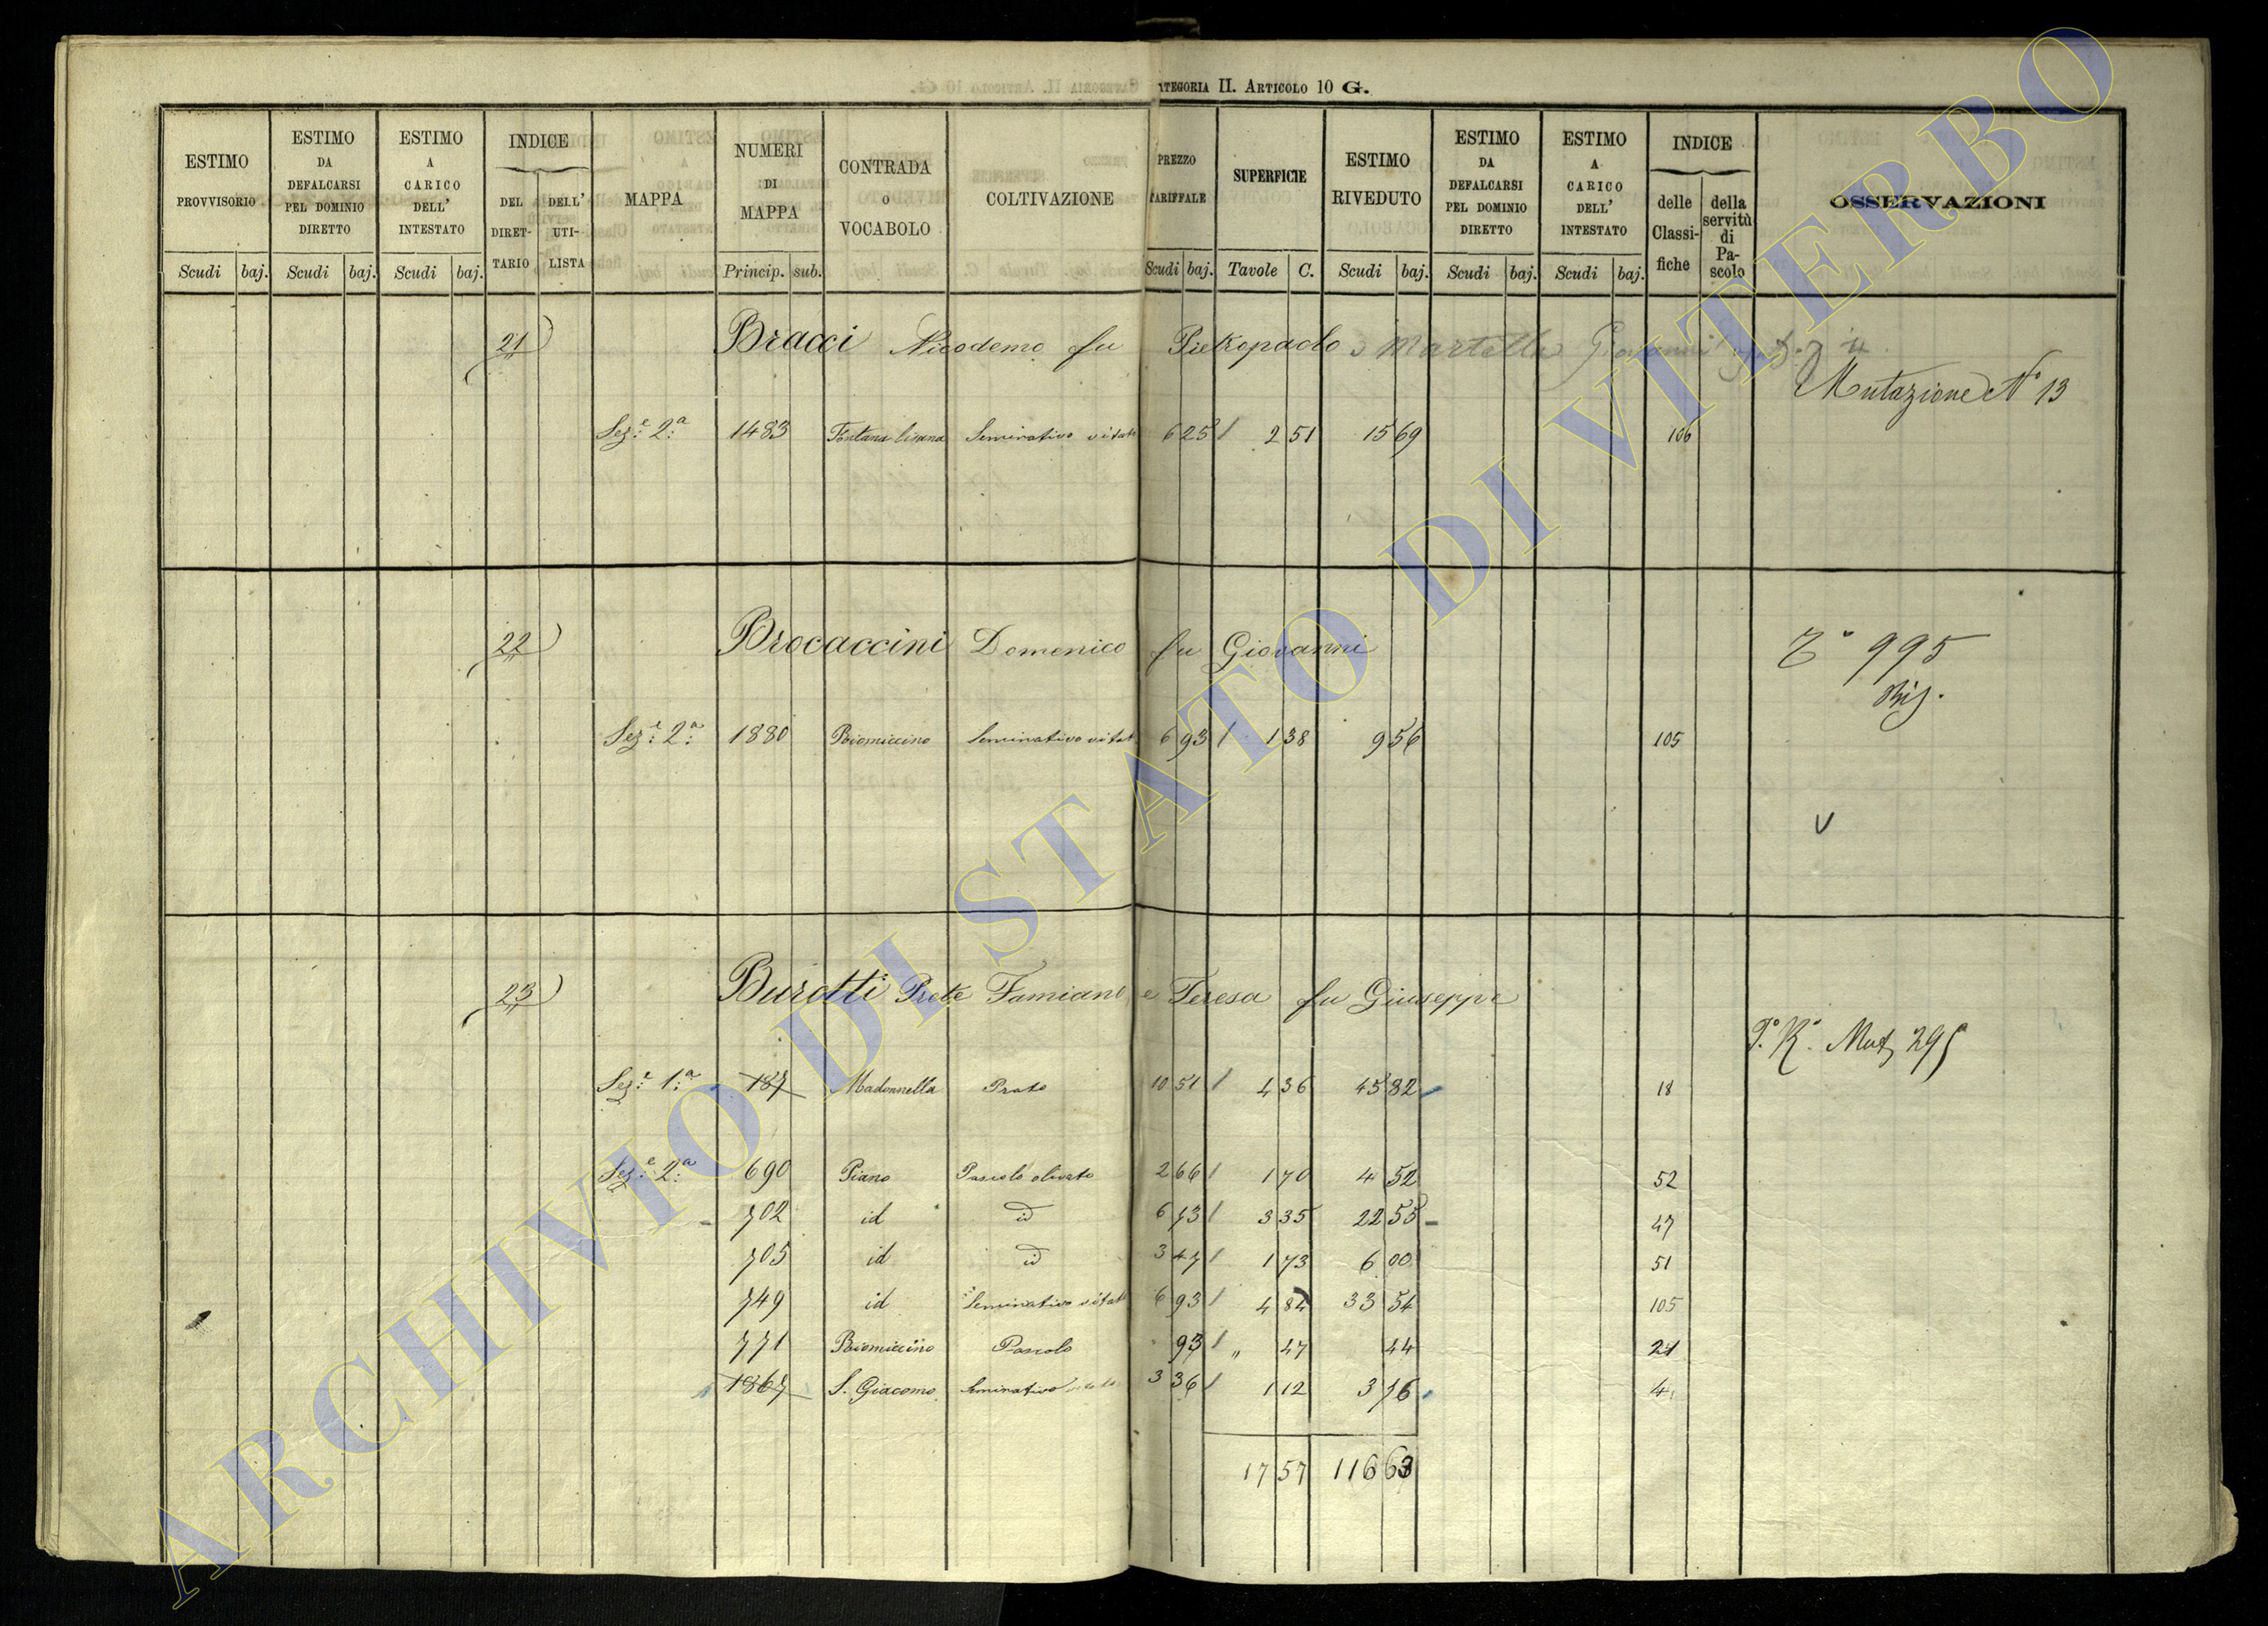 CATEGORIA II. ARTICOLO 10 G.
ESTIMO PROVVISORIO Scudi baj.
ESTIMO DA DEFALCARSI PEL DOMINIO DIRETTO Scudi baj.
ESTIMO A CARICO DELL' INTESTATO Scudi baj.
INDICE DEL DIRET-TARIO DELL' UTI-LISTA
MAPPA
NUMERI DI MAPPA Princip. sub.
CONTRADA o VOCABOLO
COLTIVAZIONE
PREZZO TARIFFALE Scudi baj.
SUPERFICIE Tavole C.
ESTIMO RIVEDUTO Scudi baj.
ESTIMO DA DEFALCARSI PEL DOMINIO DIRETTO Scudi baj.
ESTIMO A CARICO DELL' INTESTATO Scudi baj.
INDICE delle Classi-fiche della servitù di Pa-scolo
OSSERVAZIONI
21) Bracci Nicodemo fu Pietropaolo e Martella Giovanni
Mutazione N° 13
Sez.e 2.a 1483 Fontana lisana Seminativo vitato 6 25 2 51 15 69 106
22) Brocaccini Domenico fu Giovanni
T° 995
Bis.
Sez.e 2.a 1880 Biomiccino Seminativo vitato 6 93 1 38 9 56 105
V
23) Burotti Prete Famiano e Teresa fu Giuseppe
Mut, 295
Sez.e 1.a 187 Madonnella Prato 10 51 4 36 45 82 18
Sez.e 2.a 690 Piano Pascolo olivato 2 66 1 70 4 52 52
702 id id 6 73 3 35 22 55 47
705 id id 3 47 1 73 6 00 51
749 id Seminativo vitato 6 93 4 84 33 54 105
771 Biomiccino Pascolo 93 " 47 44 21
1867 S. Giacomo Seminativo vitato 3 36 1 12 3 76 4
17 57 116 63
ARCHIVIO DI STATO DI VITERBO